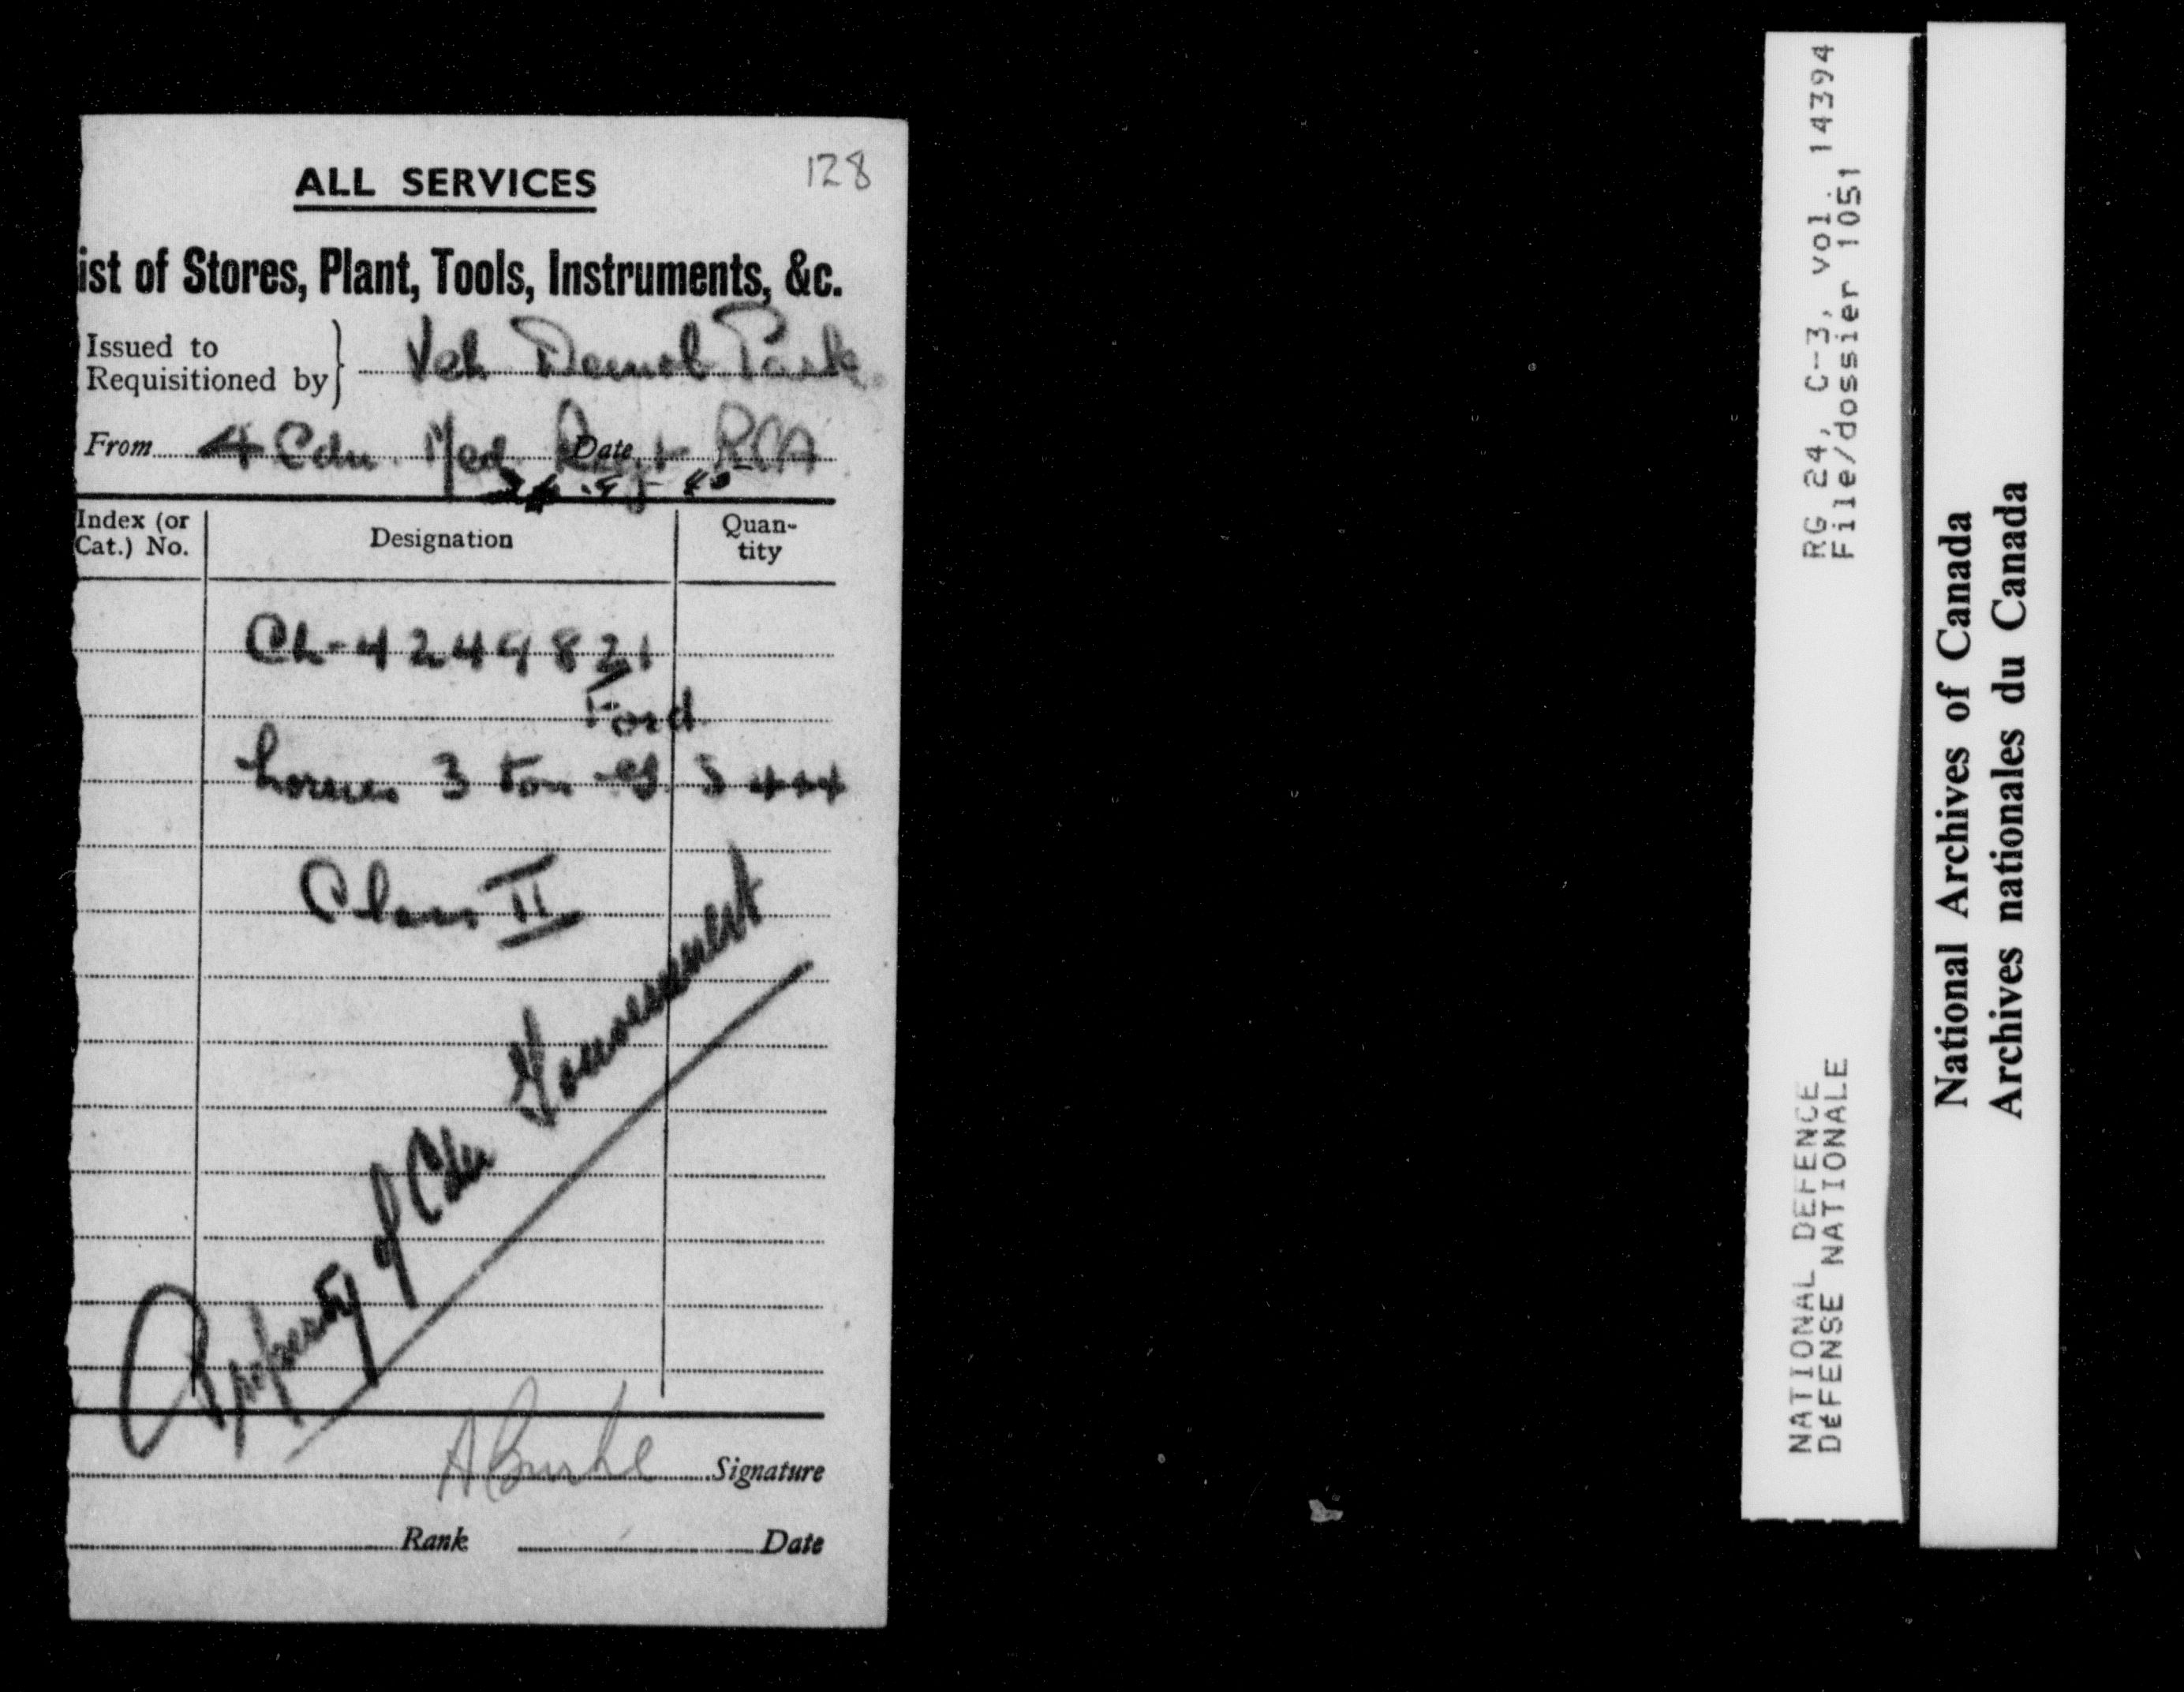 128
ALL SERVICES
ist of Stores, Plant, Tools, Instruments, &c.
Issued to
Requisitioned by } Veh Demob Park.
From 4 Cdn. Med. Regt RCA Date
Index (or Cat.) No. Designation Quan-tity
Ford
3 ton 4x4
Class II
Property of Cdn Government
A Burke Signature
Rank Date
RG 24, C-3, vol. 14394
File/dossier 1051
NATIONAL DEFENCE
DÉFENSE NATIONALE
National Archives of Canada
Archives nationales du Canada